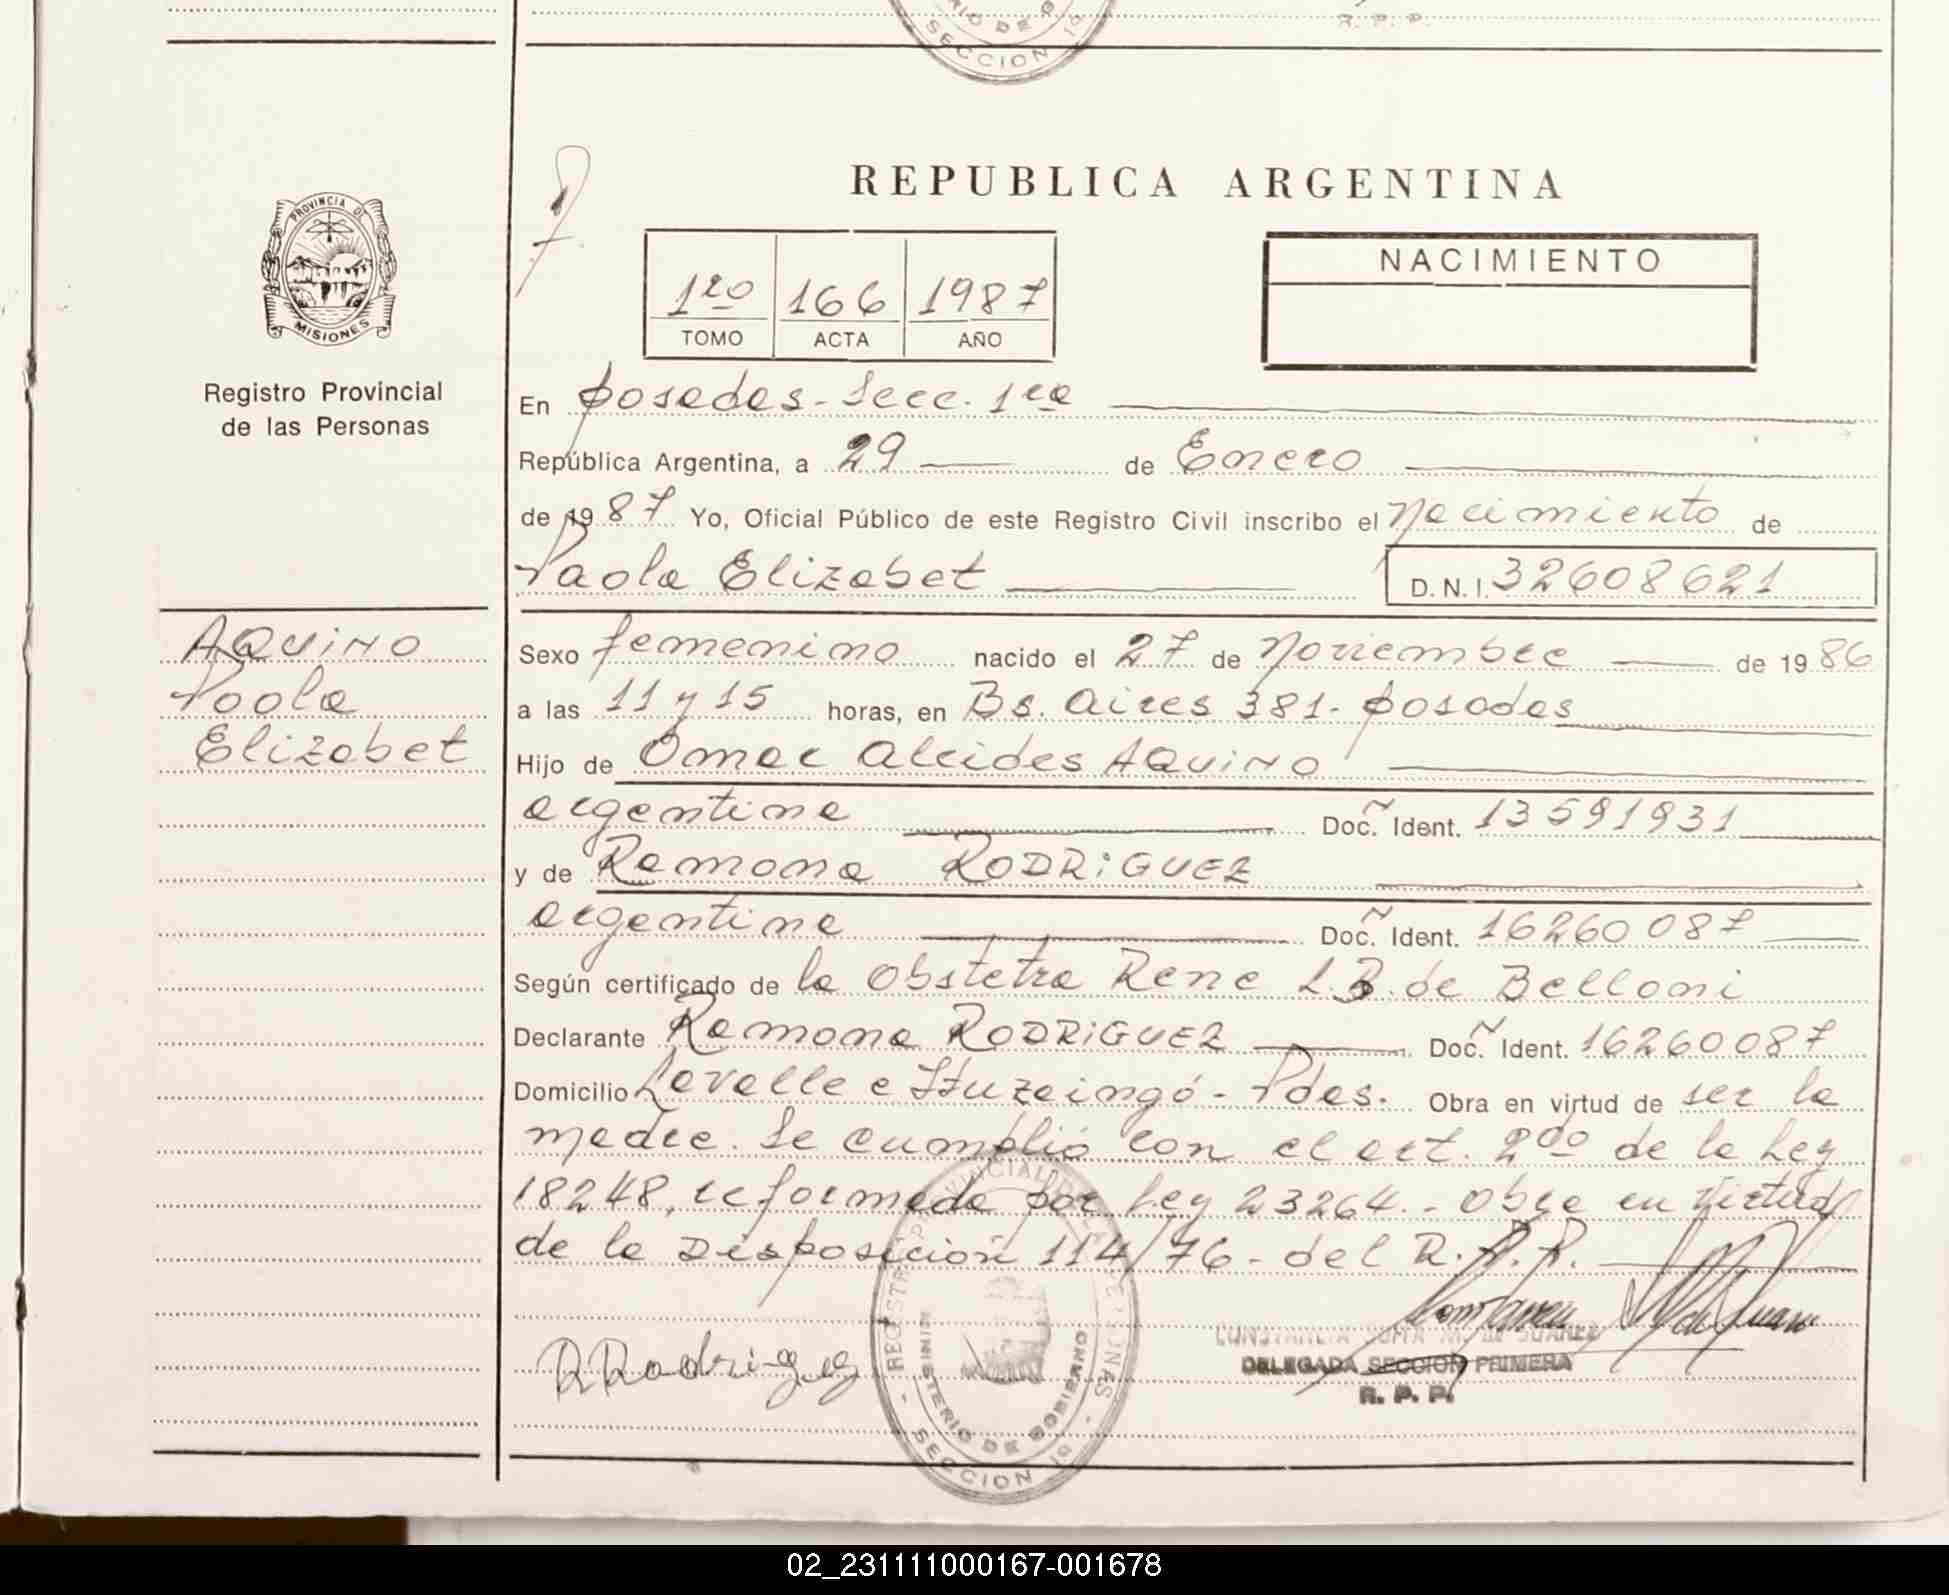 SECCION 1º
R. P. P.
PROVINCIA DE
MISIONES
Registro Provincial
de las Personas
REPUBLICA ARGENTINA
1ro 166 1987
TOMO ACTA AÑO
NACIMIENTO
En posadas - Secc. 1ra
República Argentina, a 29 de Enero
de 1987 Yo, Oficial Público de este Registro Civil inscribo el Nacimiento de
Paola Elizabet D.N.I. 32608621
AQUINO
Paola
Elizabet
Sexo femenino nacido el 27 de Noviembre de 1986
a las 11 y 15 horas, en Bs. Aires 381 - posadas
Hijo de Omar Alcides AQUINO
argentina Doc. Ident. 13591931
y de Ramona RODRIGUEZ
argentina Doc. Ident. 16260087
Según certificado de la Obstetra Rene L.B. de Belloni
Declarante Ramona RODRIGUEZ Doc. Ident. 16260087
Domicilio Lavalle e Ituzaingó - Pdas. Obra en virtud de ser la
madre. Se cumplió con el art. 2do de la Ley
18248, reformada por Ley 23264. - Obra en virtud
de la Disposición 114/76 - del R.P.P.
RRodriguez
REGISTRO PROVINCIAL DE LAS PERSONAS
MINISTERIO DE GOBIERNO
- SECCION 1º -
CONSTANCIA SUAREZ
DELEGADA SECCION PRIMERA
R. P. P.
02_231111000167-001678